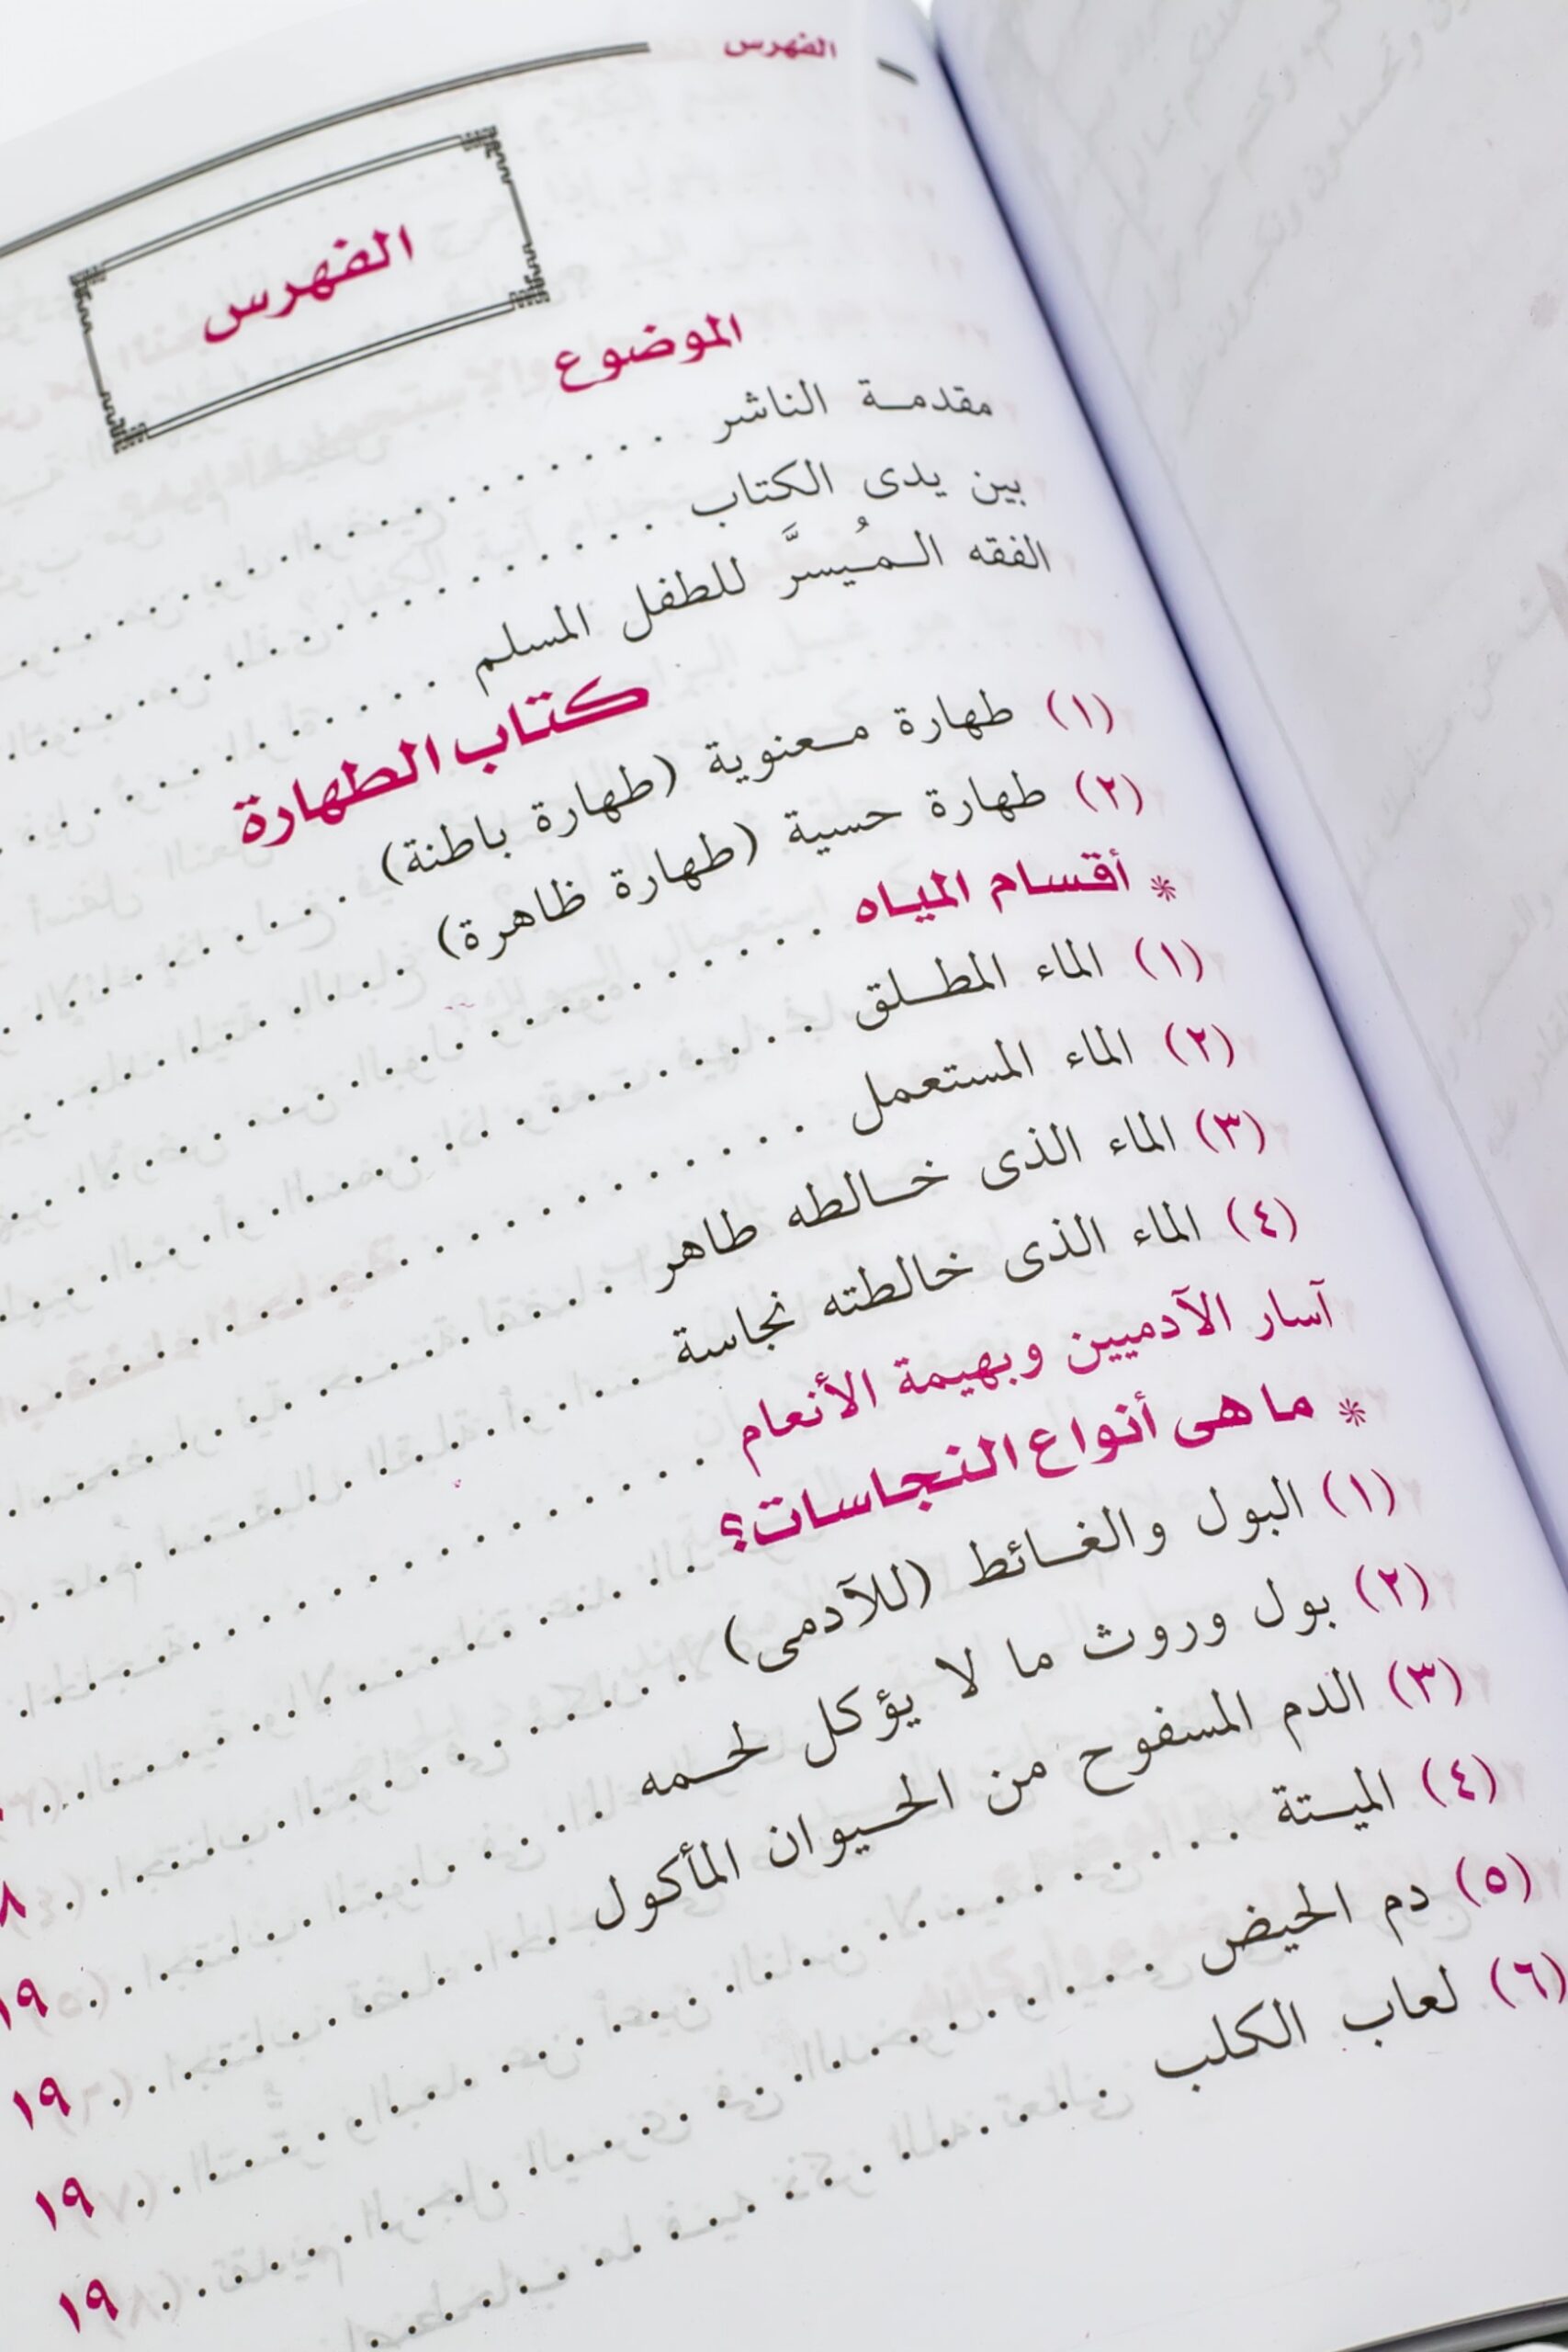 الفهرس
الفهرس
الموضوع
مقدمة الناشر
بين يدى الكتاب
الفقه المُيسرَّ للطفل المسلم
كتاب الطهارة
(١) طهارة معنوية (طهارة باطنة)
(٢) طهارة حسية (طهارة ظاهرة)
* أقسام المياه
(١) الماء المطلق
(٢) الماء المستعمل
(٣) الماء الذى خالطه طاهر
(٤) الماء الذى خالطته نجاسة
آسار الآدميين وبهيمة الأنعام
* ما هى أنواع النجاسات؟
(١) البول والغائط (للآدمى)
(٢) بول وروث ما لا يؤكل لحمه ٨
(٣) الدم المسفوح من الحيوان المأكول ١٩
(٤) الميتة ١٩
(٥) دم الحيض ١٩
(٦) لعاب الكلب ١٩